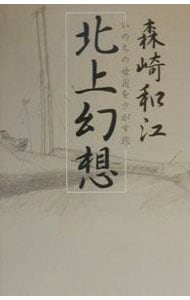 森崎和江
いのちの母国をさがす旅
北上幻想